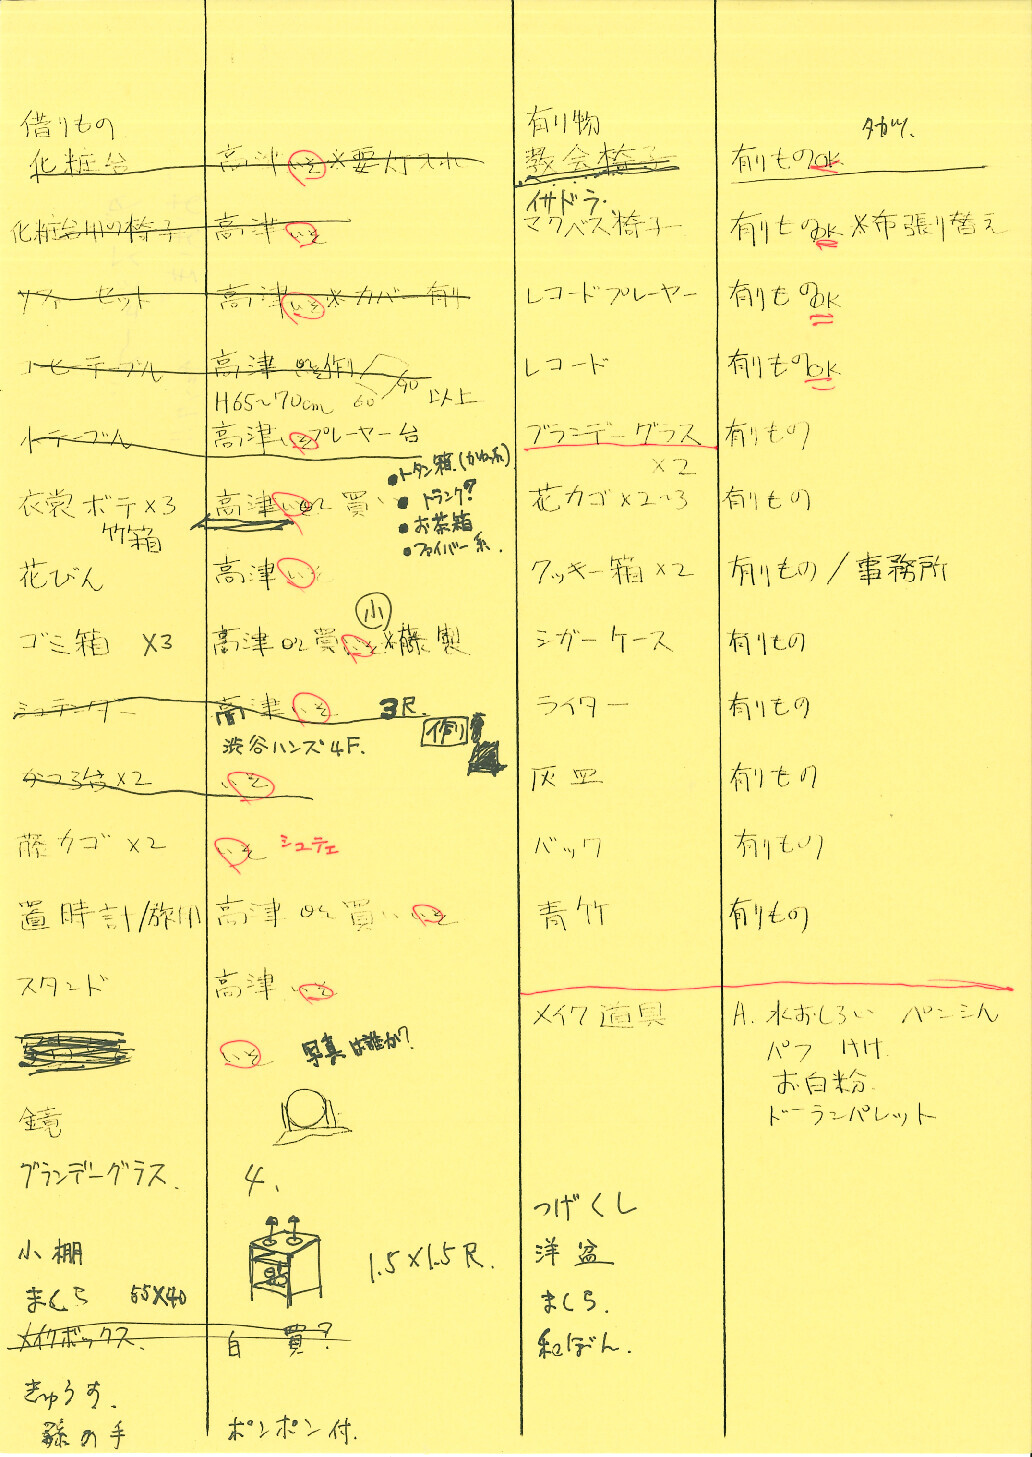 借りもの
化粧台 高津 いそ ※要灯入れ
化粧台用の椅子 高津 いそ
ソファーセット 高津 いそ ※カバー有り
コーヒーテーブル 高津 or 作り
H65〜70cm 60/90以上
小テーブル 高津 いそ プレーヤー台
衣裳ボテ×3 高津 いそ or 買い
竹箱
•トタン箱
•トランク?
•お茶箱
•ファイバー系.
花びん 高津 いそ
小
ゴミ箱 ×3 高津 or 買い いそ ※藤製
高津 いそ 3尺.
渋谷ハンズ4F. 作り
×2 いそ
藤カゴ ×2 いそ シュテェ
置時計/旅用 高津 or 買い いそ
スタンド 高津 いそ
いそ 写真は誰が?
鏡
ブランデーグラス. 4.
小棚 1.5×1.5尺.
まくら 55×40
メイクボックス. 自 買?
きゅうす.
孫の手 ポンポン付.
有り物 タカツ.
教会椅子 有りものOK
イサドラ・
マクベス椅子 有りものOK ※布張り替え
レコードプレーヤー 有りものOK
レコード 有りものOK
ブランデーグラス 有りもの
×2
花カゴ×2〜3 有りもの
クッキー箱×2 有りもの/事務所
シガーケース 有りもの
ライター 有りもの
灰皿 有りもの
バック 有りもの
青竹 有りもの
メイク道具 A. 水おしろい ペンシル
パフ ハケ
お白粉.
ドーランパレット
つげくし
洋盆
まくら.
紅ぼん.